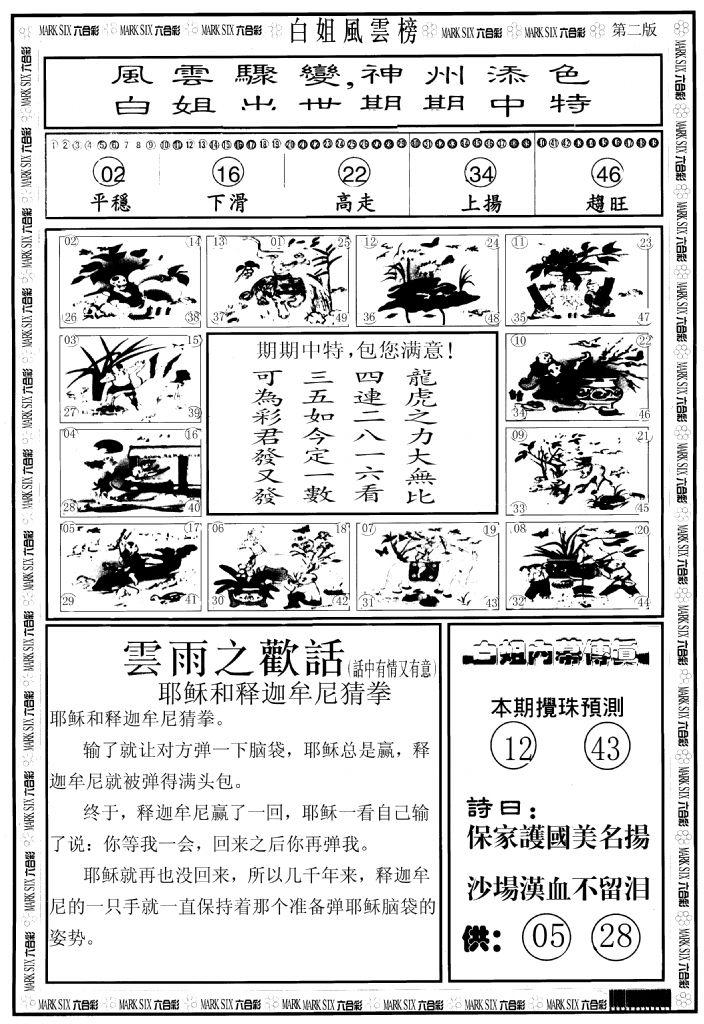 MARK SIX 六合彩 MARK SIX 六合彩 MARK SIX 六合彩 白姐風雲榜 MARK SIX 六合彩 MARK SIX 六合彩 第二版
風雲驟變,神州添色
白姐出世期期中特
1 2 3 4 5 6 7 8 9 10 11 12 13 14 15 16 17 18 19 20 21 22 23 24 25 26 27 28 29 30 31 32 33 34 35 36 37 38 39 40 41 42 43 44 45 46 47 48 49
02 16 22 34 46
平穩 下滑 高走 上揚 趨旺
02 14 13 01 25 12 24 11 23
26 38 37 49 36 48 35 47
03 15
27 39
04 16
28 40
期期中特,包您满意!
龍虎之力大無比
四連二八一六看
三五如今定一數
可為彩君發又發
10 22
34 46
09 21
33 45
05 17 06 18 07 19 08 20
29 41 30 42 31 43 32 44
雲雨之歡話(話中有情又有意)
耶稣和释迦牟尼猜拳
耶稣和释迦牟尼猜拳。
输了就让对方弹一下脑袋，耶稣总是赢，释
迦牟尼就被弹得满头包。
终于，释迦牟尼赢了一回，耶稣一看自己输
了说：你等我一会，回来之后你再弹我。
耶稣就再也没回来，所以几千年来，释迦牟
尼的一只手就一直保持着那个准备弹耶稣脑袋的
姿势。
白姐内幕傳真
本期攪珠預測
12 43
詩曰：
保家護國美名揚
沙場漢血不留泪
供：05 28
MARK SIX 六合彩 MARK SIX 六合彩 MARK SIX 六合彩 MARK SIX 六合彩 MARK SIX 六合彩 MARK SIX 六合彩 MARK SIX 六合彩